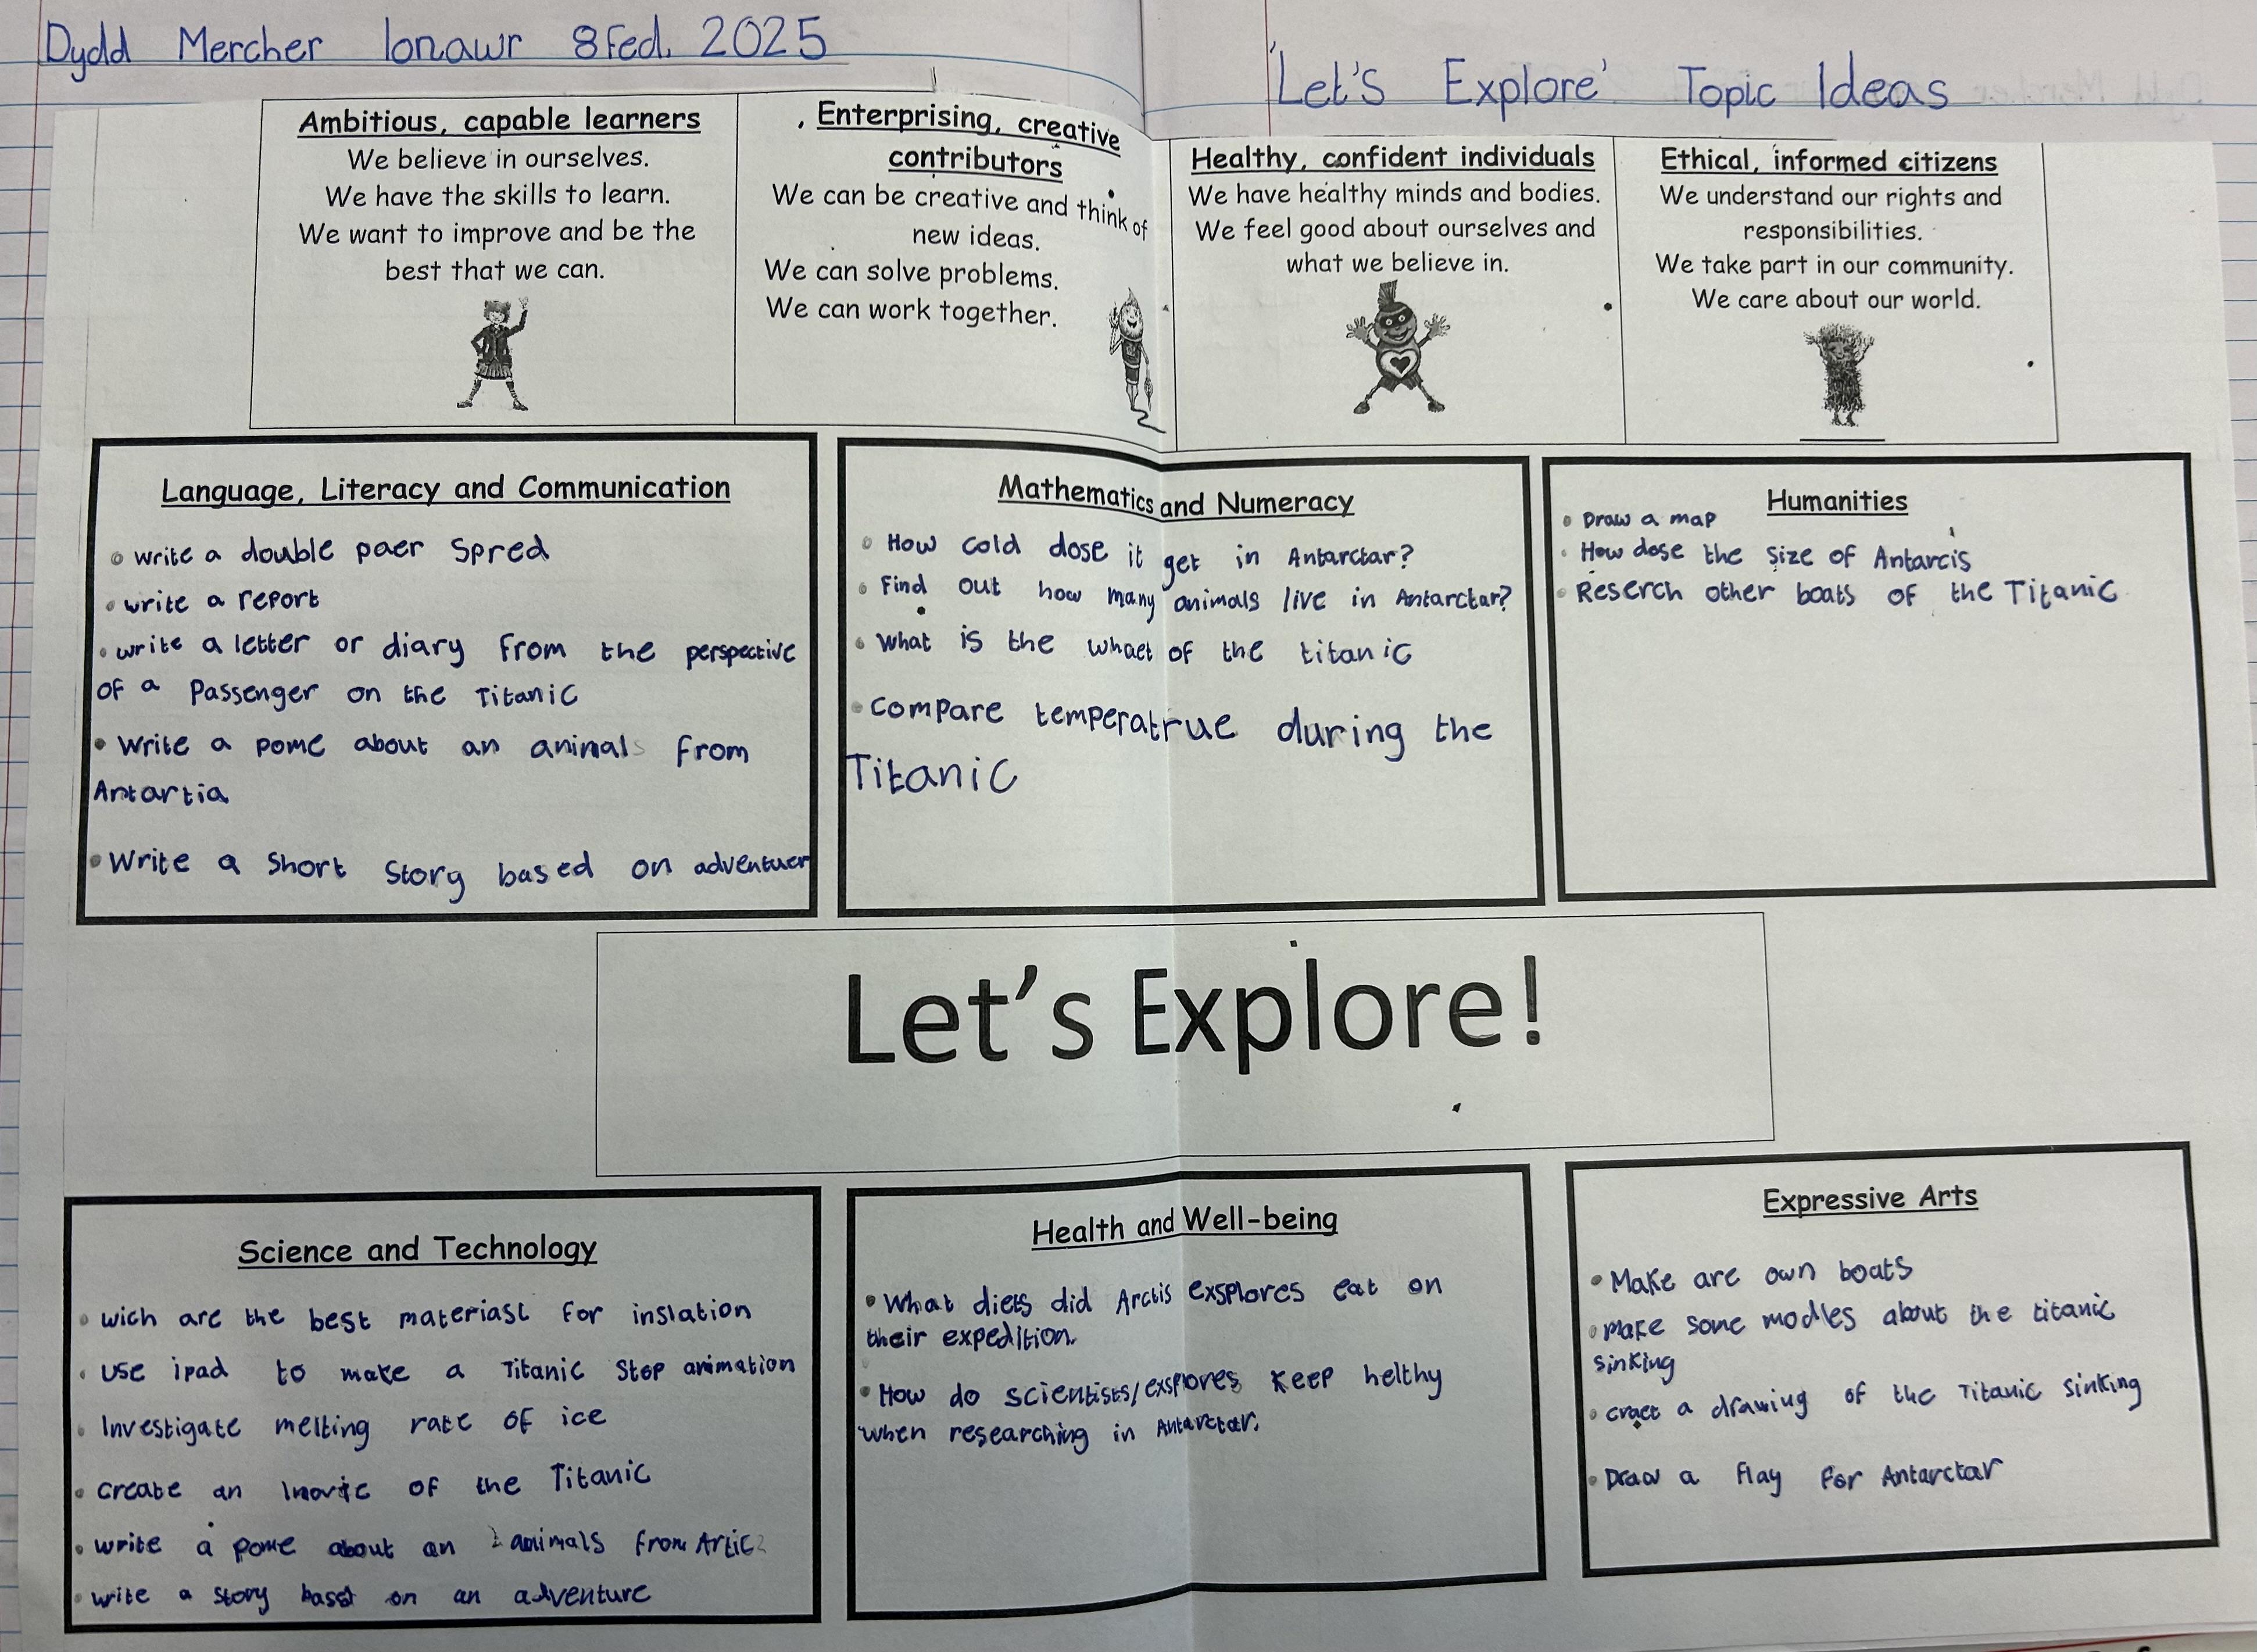 Dydd Mercher Ionawr 8fed. 2025
'Let's Explore' Topic Ideas
Ambitious, capable learners
We believe in ourselves.
We have the skills to learn.
We want to improve and be the
best that we can.
Enterprising, creative
contributors
We can be creative and think of
new ideas.
We can solve problems.
We can work together.
Healthy, confident individuals
We have healthy minds and bodies.
We feel good about ourselves and
what we believe in.
Ethical, informed citizens
We understand our rights and
responsibilities.
We take part in our community.
We care about our world.
Language, Literacy and Communication
• write a double paer spred
• write a report
• write a letter or diary from the perspective
of a passenger on the Titanic
• Write a pome about an animals from
Antartia
• Write a short story based on adventuer
Mathematics and Numeracy
• How cold dose it get in Antarctar?
• Find out how many animals live in Antarctar?
• What is the whaet of the titanic
• Compare temperatrue during the
Titanic
Humanities
• Draw a map
• How dose the size of Antarcis
• Reserch other boats of the Titanic
Let's Explore!
Science and Technology
• wich are the best materiasl for inslation
• use ipad to make a Titanic stop animation
• Investigate melting rate of ice
• create an Imovie of the Titanic
• write a pome about an animals from Artic
• write a story basst on an adventure
Health and Well-being
• What diets did Arctis exsplores eat on
their expedition.
• How do scientists/exsplores keep helthy
when researching in Antarctar.
Expressive Arts
• Make are own boats
• Make some modles about the titanic
sinking
• craet a drawing of the Titanic sinking
• Draw a flag for Antarctar